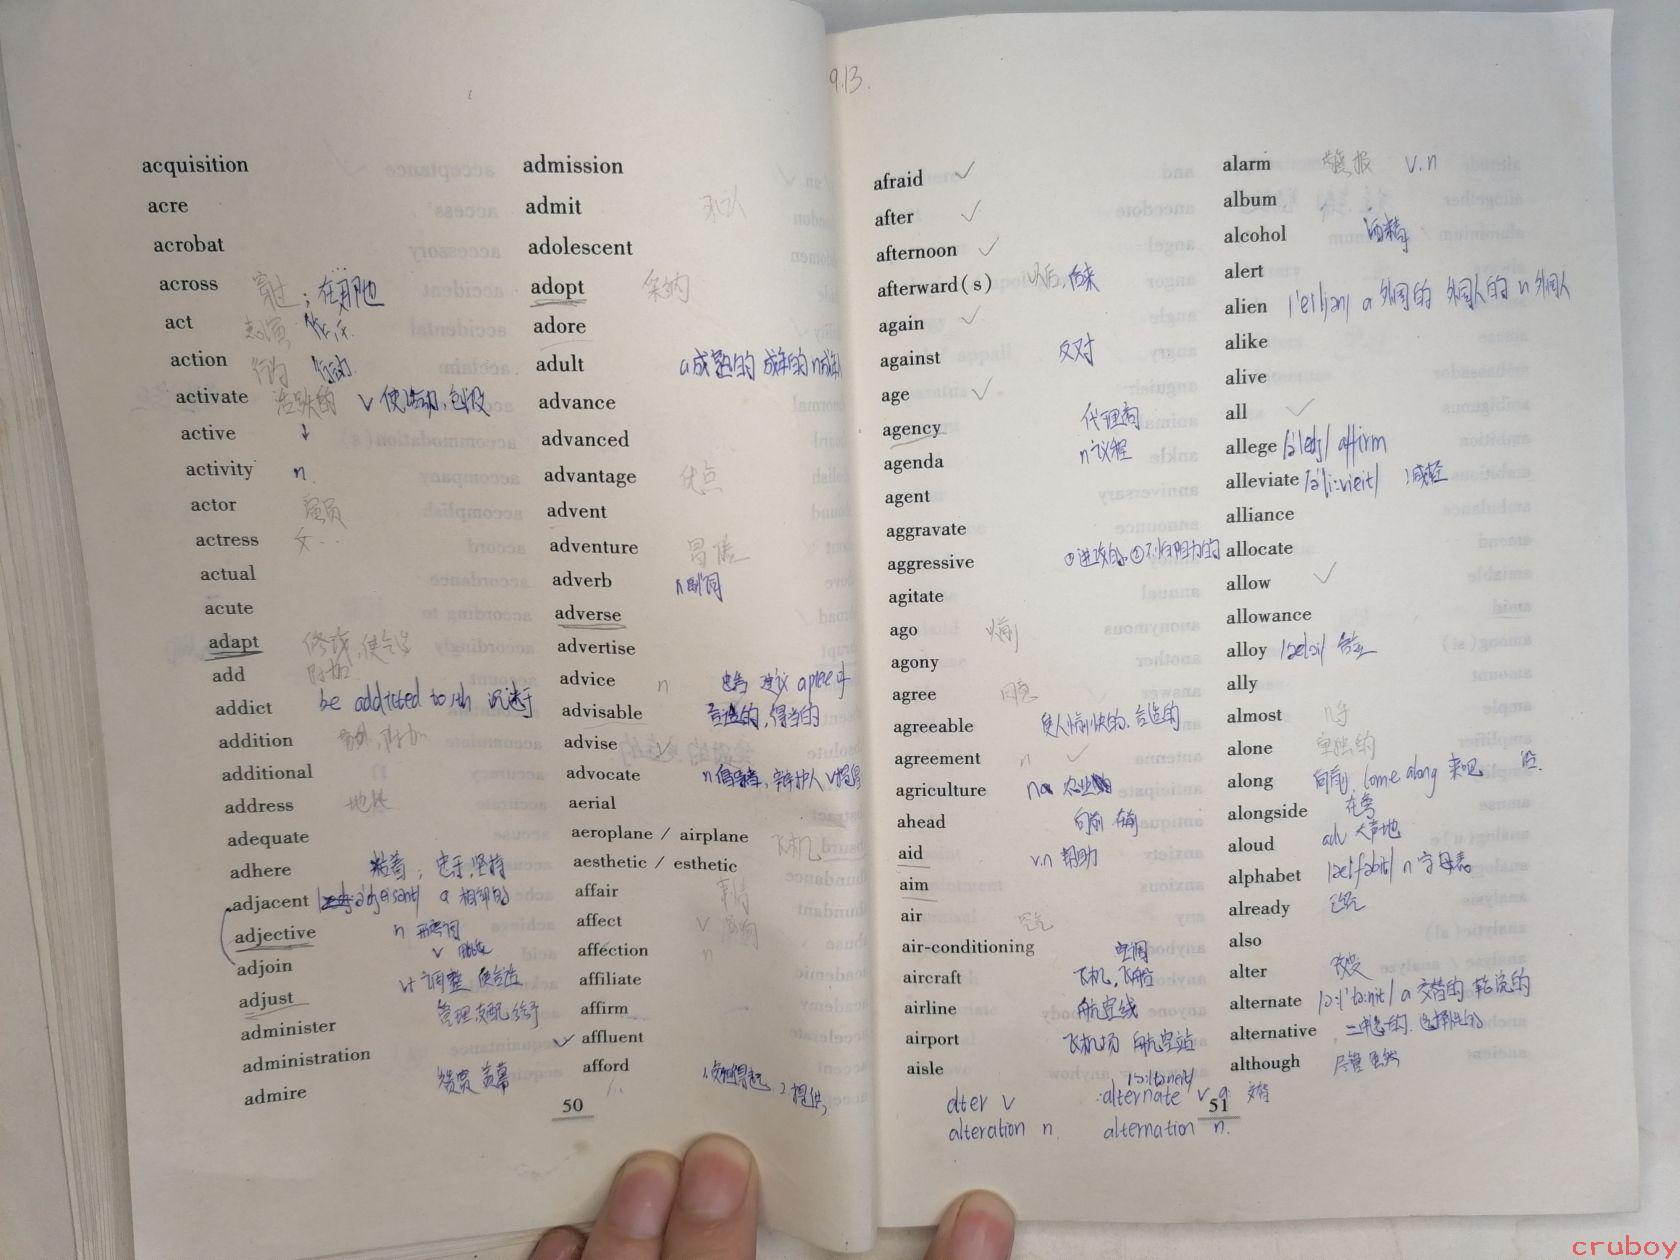 9.13.
acquisition
acre
acrobat
across 穿过；在那边
act 表演
action 行为 行动.
activate 活跃的 v 使活动,
active ↓
activity n.
actor 演员
actress 女...
actual
acute
adapt 修改,使合适
add 附加
addict be addicted to sth 沉迷于
addition
additional
address 地址
adequate
adhere 粘着； 忠于,坚持
adjacent a 相邻的
adjective n 形容词
adjoin v
adjust vt 调整 使合适
administer 管理 支配 给予
administration
admire 赞赏 羡慕
admission
admit 承认
adolescent
adopt 采纳
adore
adult a成熟的 成年的 n成年
advance
advanced
advantage 优点
advent
adventure 冒险
adverb n副词
adverse
advertise
advice n 忠告 建议
advisable 合适的,得当的
advise ✓
advocate n倡导者, 辩护人 v提倡
aerial
aeroplane / airplane 飞机
aesthetic / esthetic
affair 事情
affect v 影响
affection n
affiliate
affirm
✓ affluent
afford 1.负担得起. 2.提供,
50
afraid ✓
after ✓
afternoon ✓
afterward(s) 以后,后来
again ✓
against 反对
age ✓
agency 代理商
agenda n 议程
agent
aggravate
aggressive ①进攻的。②不怕阻力的
agitate
ago 以前
agony
agree 同意
agreeable 使人愉快的,合适的
agreement n ✓
agriculture n 农业
ahead 向前 在前
aid v.n 帮助
aim
air 空气
air-conditioning 空调
aircraft 飞机,飞船
airline 航空线
airport 飞机场 航空站
aisle
alter v
alteration n.
alternate v a 交替
alternation n.
alarm 警报 v.n
album
alcohol 酒精
alert
alien a 外国的 外国人的 n 外国人
alike
alive
all ✓
allege affirm
alleviate 减轻
alliance
allocate
allow ✓
allowance
alloy 合金
ally
almost 几乎
alone 单独的
along 向前, come along 来吧 沿.
alongside 在旁
aloud adv 大声地
alphabet n 字母表
already 已经
also
alter 改变
alternate a 交替的 轮流的
alternative 二中选一的. 选择性的
although 尽管 虽然
51
cruboy